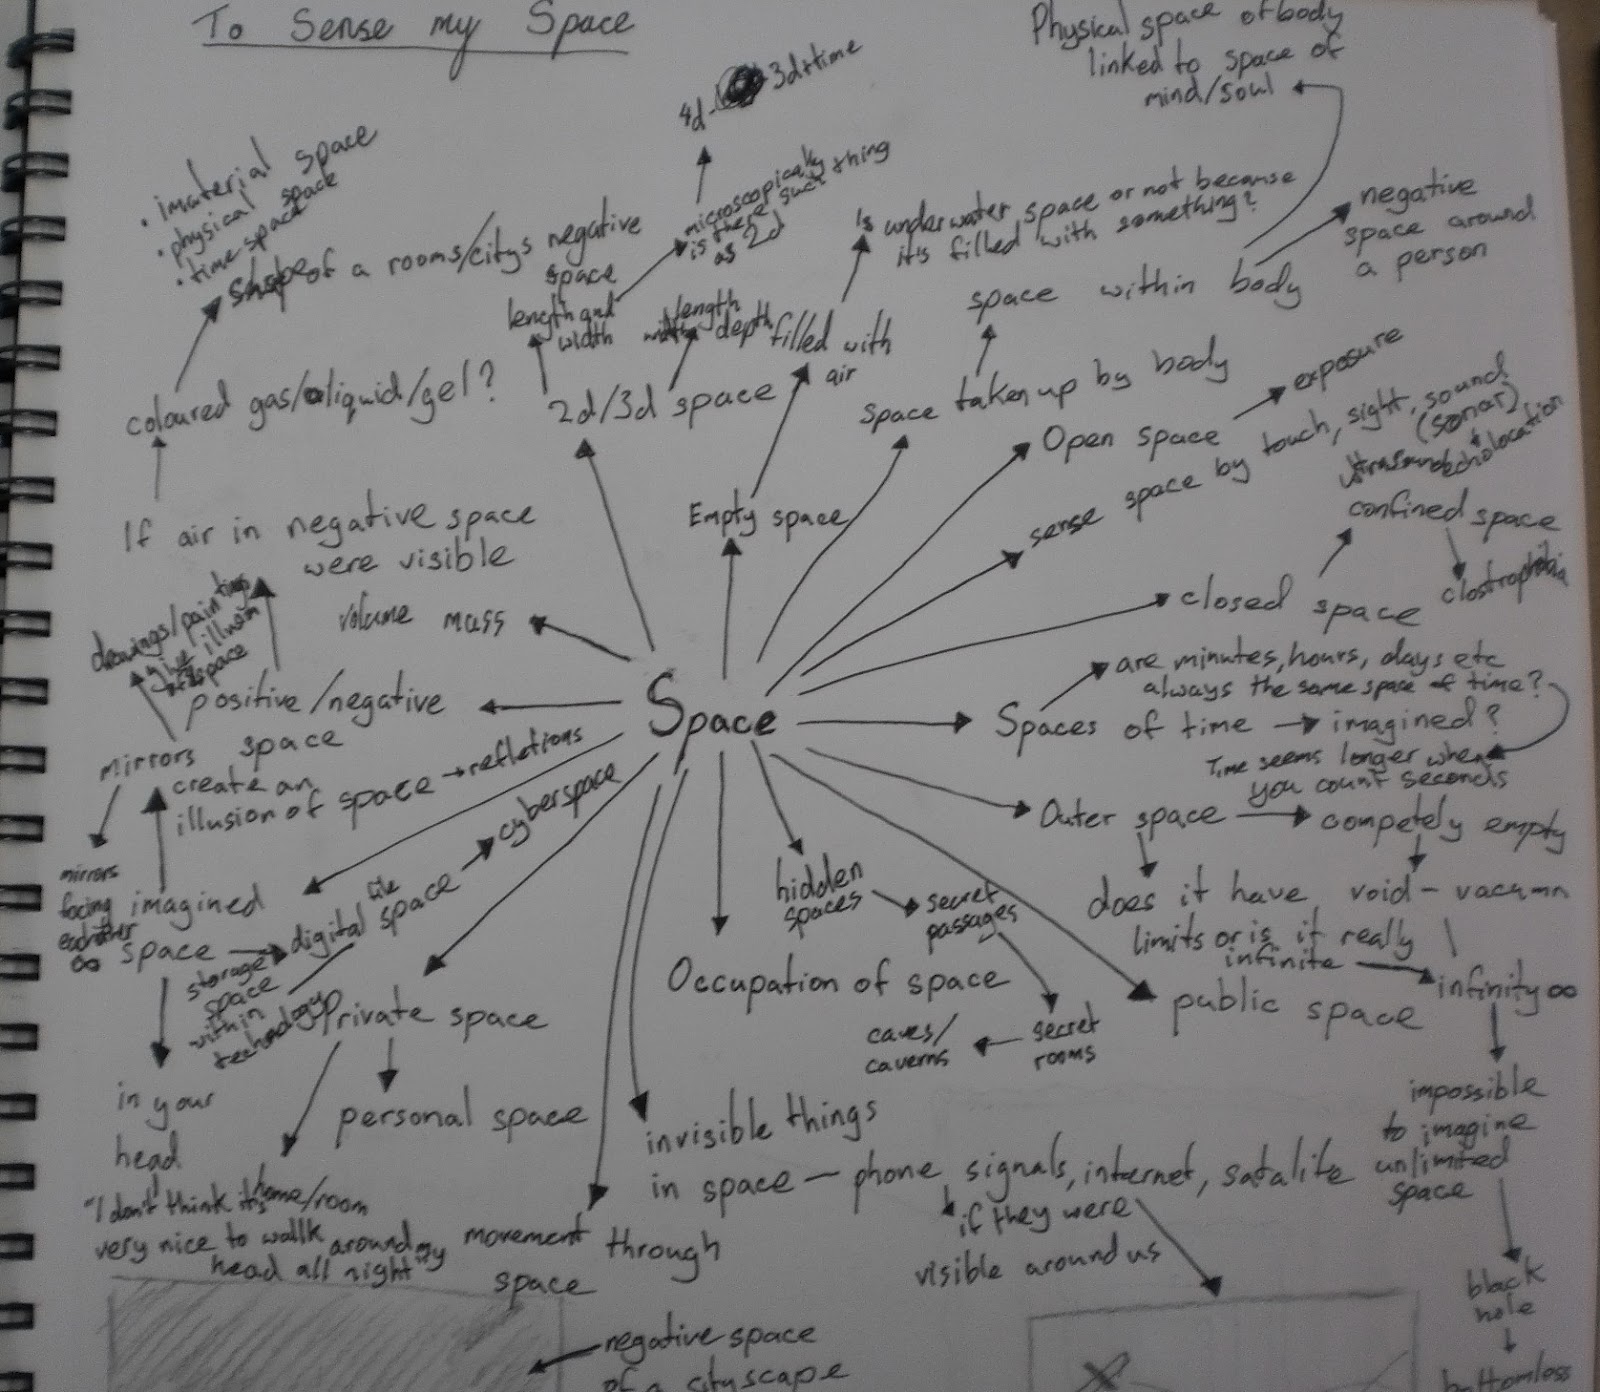 To Sense my Space
Physical space of body
linked to space of
mind/soul
4d - 3d+time
• imaterial space
• physical space
• time space
shape of a rooms/citys negative
space
microscopically
is there such thing
as 2d
Is underwater space or not because
it's filled with something?
negative
space around
a person
space within body
length and
width
length
width depth
filled with
air
coloured gas/liquid/gel?
2d/3d space
space taken up by body
Open space
exposure
sense space by touch, sight, sound
(sonar)
ultrasound echolocation
Empty space
confined space
clostrophobia
If air in negative space
were visible
volume mass
closed space
drawings/paintings
give illusion
of space
are minutes, hours, days etc
always the same space of time?
positive/negative
space
Space
Spaces of time
imagined?
Time seems longer when
you count seconds
mirrors
create an
illusion of space
refletions
Outer space
competely empty
cyberspace
mirrors
facing
eachother
∞
imagined
space
digital space
like
storage
space
within
technology
hidden
spaces
secret
passages
does it have
limits or is it really
infinite
void - vacumn
infinity ∞
Occupation of space
public space
Private space
caves/
caverns
secret
rooms
in your
head
personal space
impossible
to imagine
unlimited
space
invisible things
in space - phone signals, internet, satalite
if they were
visible around us
home/room
"I don't think it's
very nice to wallk around my
head all night"
movement through
space
black
hole
bottomless
negative space
of a cityscape